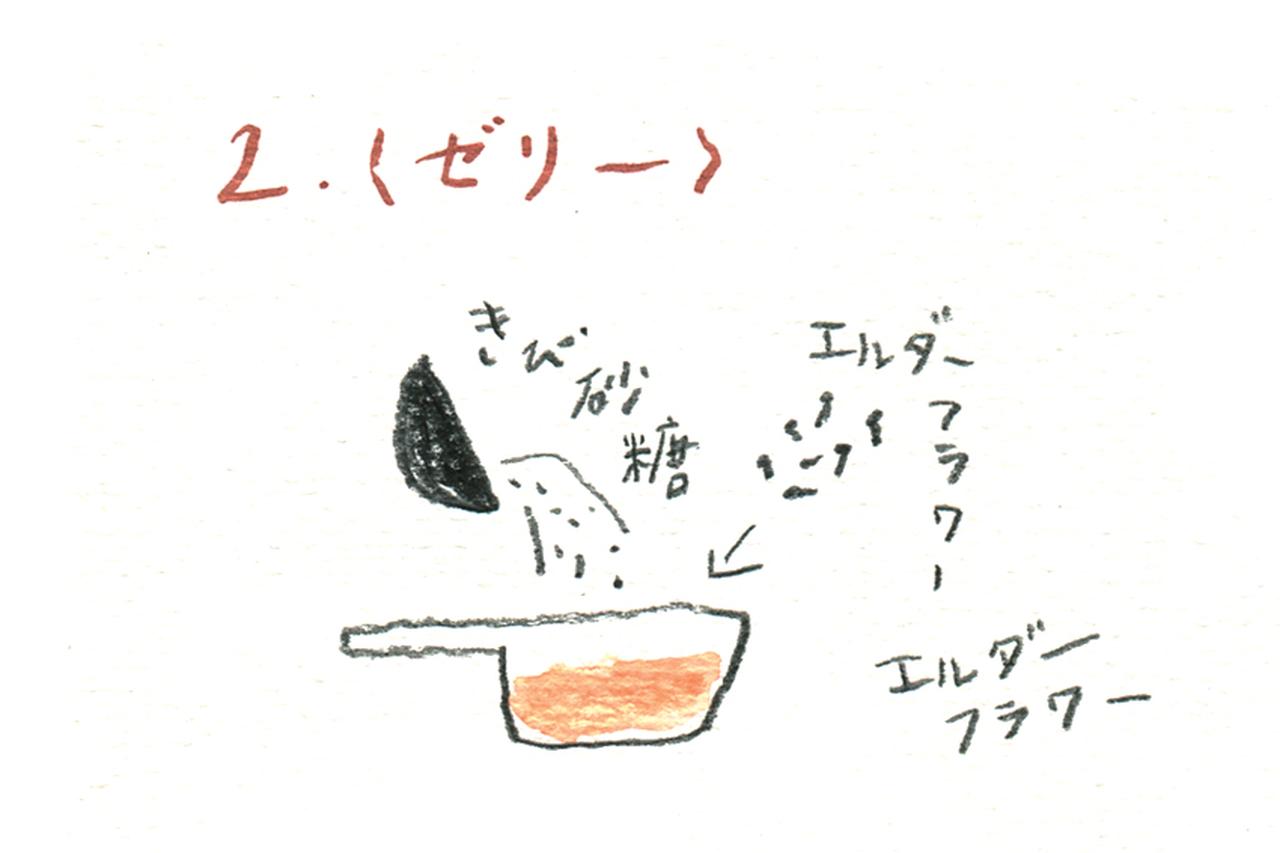 2.〈ゼリー〉
きび砂糖
エルダー
フラワー
エルダー
フラワー